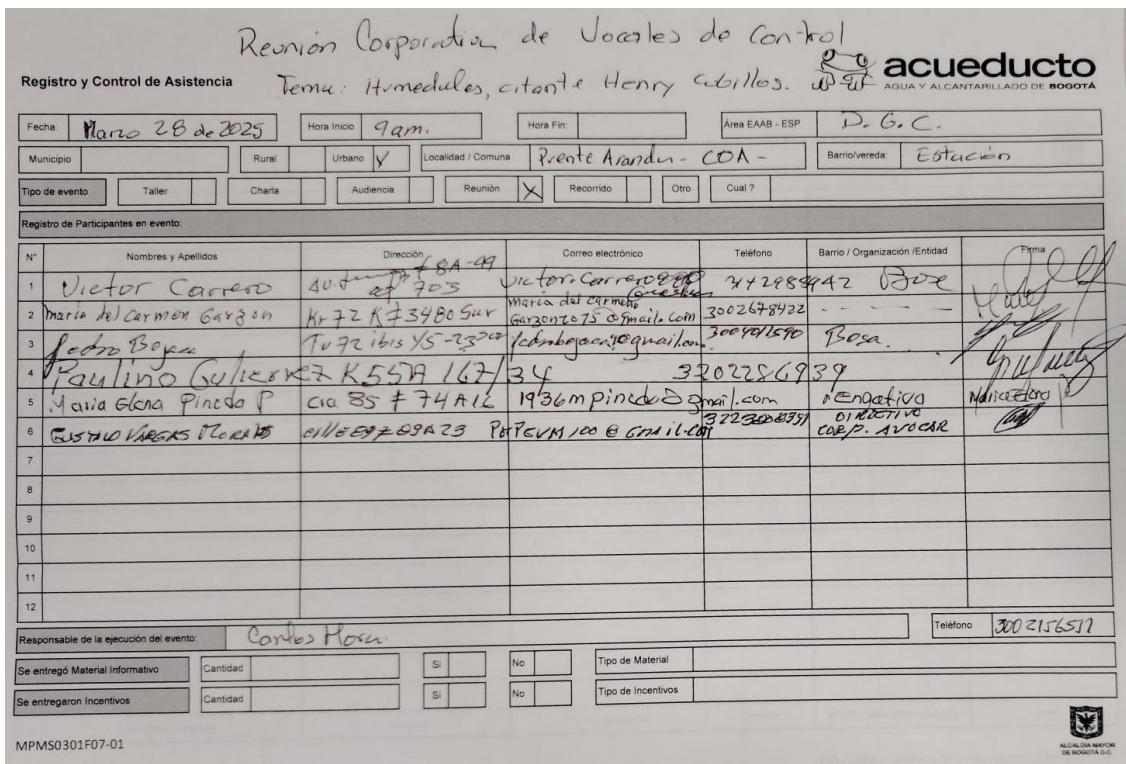 Reunión Corporativa de Vocales de Control
Registro y Control de Asistencia
Tema: Humedales, citante Henry Cubillos.
acueducto
AGUA Y ALCANTARILLADO DE BOGOTÁ
Fecha: Marzo 28 de 2025 Hora Inicio 9am. Hora Fin: Área EAAB - ESP D. G. C.
Municipio Rural Urbano X Localidad / Comuna Puente Aranda - COA - Barrio/vereda: Estación
Tipo de evento Taller Charla Audiencia Reunión X Recorrido Otro Cual ?
Registro de Participantes en evento:
N° Nombres y Apellidos Dirección Correo electrónico Teléfono Barrio / Organización /Entidad Firma
1 Victor Carrero 703
2 Maria del Carmen Garzon Kr 72 K # 3480 Sur maria del carmen Garzon2075@gmail.com 3002678422
3 Pedro 3004041590 Bosa.
4 Paulino Gutierrez K55A 167/34 3202286939
5 Maria Elena Pineda P cra 85 # 74A16 1936mpineda@gmail.com Engativa Maria Elena
6 GUSTAVO VARGAS MORALES DIRECTIVO CORP. AVOCAR
7
8
9
10
11
12
Responsable de la ejecución del evento: Carlos Mora. Teléfono
Se entregó Material Informativo Cantidad Si No Tipo de Material
Se entregaron Incentivos Cantidad Si No Tipo de Incentivos
MPMS0301F07-01
ALCALDÍA MAYOR
DE BOGOTÁ D.C.